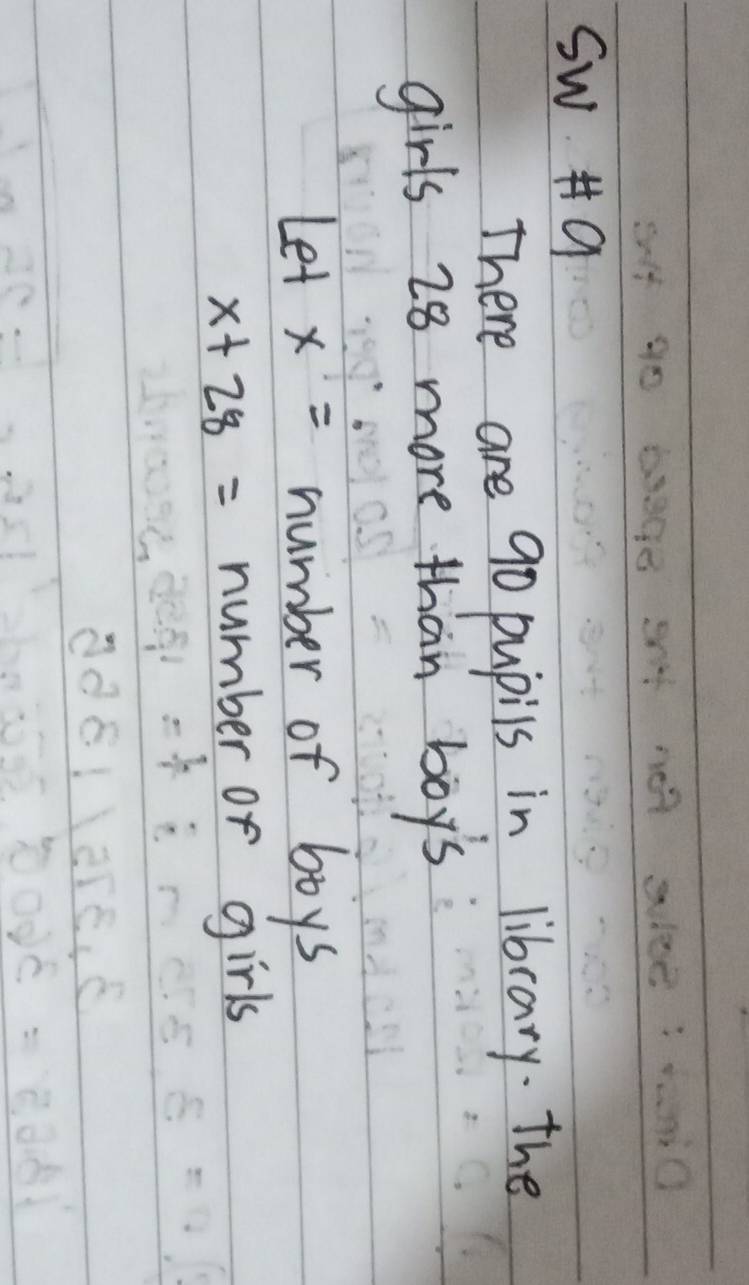 SW #9
There are 90 pupils in library. The
girls 28 more than boys
Let x = number of boys
x+28 = number of girls